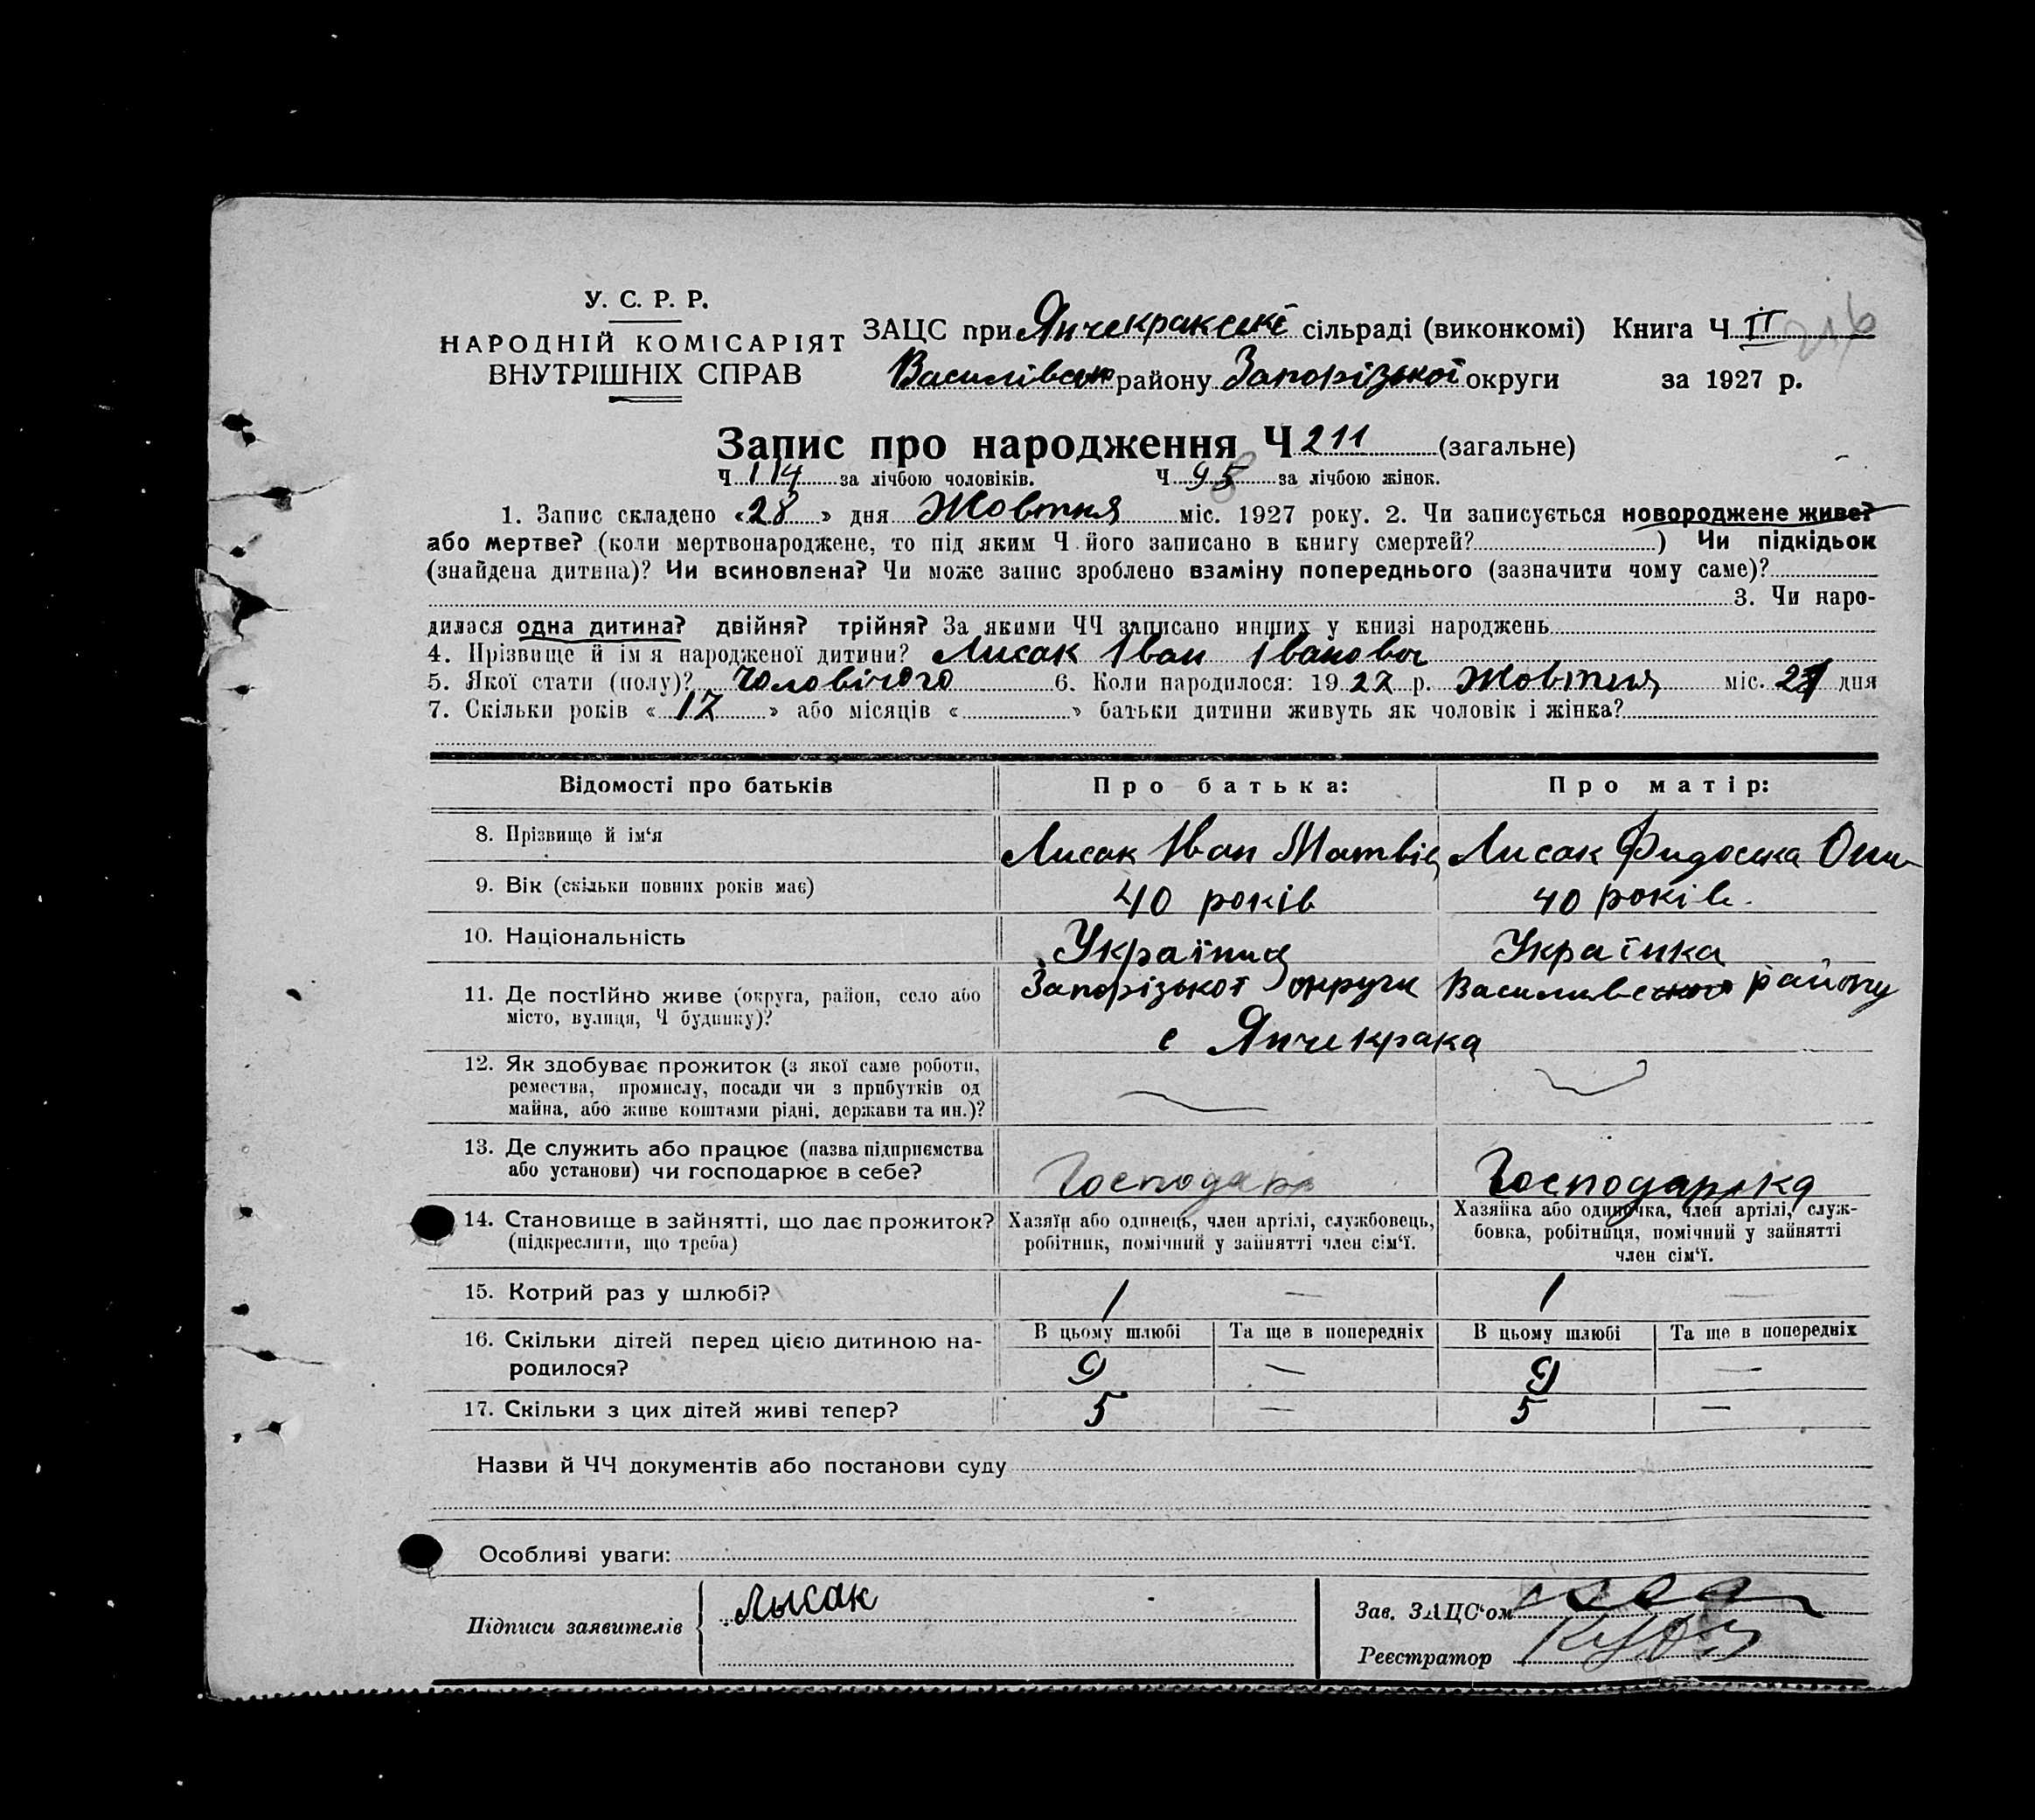 У. С. Р. Р.
НАРОДНІЙ КОМІСАРІЯТ
ВНУТРІШНІХ СПРАВ
ЗАЦС при Янчекракскі сільраді (виконкомі) Книга Ч II 216
району Запорізької округи за 1927 р.
Запис про народження Ч 211 (загальне)
Ч 114 за лічбою чоловіків. Ч за лічбою жінок.
1. Запис складено «28» дня Жовтня міс. 1927 року. 2. Чи записується новороджене живе?
або мертве? (коли мертвонароджене, то під яким Ч його записано в книгу смертей?) Чи підкідьок
(знайдена дитина)? Чи всиновлена? Чи може запис зроблено взаміну попереднього (зазначити чому саме)?
3. Чи наро-
дилася одна дитина? двійня? трійня? За якими ЧЧ записано инших у книзі народжень
4. Прізвище й ім я народженої дитини? Лисак Іван Іванович
5. Якої стати (полу)? Чоловічого 6. Коли народилося: 1927 р. Жовтня міс. 27 дня
7. Скільки років «17» або місяців «» батьки дитини живуть як чоловік і жінка?
Відомості про батьків Про батька: Про матір:
8. Прізвище й ім'я Лисак Іван Матвіє Лисак Фидоська
9. Вік (скільки повних років має) 40 років 40 років.
10. Національність Українца Українка
11. Де постійно живе (округа, район, село або Запорізької округи Василивского району
місто, вулиця, Ч будинку)? с Янчекрака
12. Як здобуває прожиток (з якої саме роботи,
ремества, промислу, посади чи з прибутків од
майна, або живе коштами рідні, держави та ин.)?
13. Де служить або працює (назва підприємства
або установи) чи господарює в себе? Господарь Господарька
14. Становище в зайнятті, що дає прожиток? Хазяїн або одинець, член артілі, службовець, Хазяйка або одиночка, член артілі, служ-
(підкреслити, що треба) робітник, помічний у зайнятті член сім'ї. бовка, робітниця, помічний у зайнятті
член сім'ї.
15. Котрий раз у шлюбі? 1 — 1 —
16. Скільки дітей перед цією дитиною на- В цьому шлюбі Та ще в попередніх В цьому шлюбі Та ще в попередніх
родилося? 9 — 9 —
17. Скільки з цих дітей живі тепер? 5 — 5 —
Назви й ЧЧ документів або постанови суду
Особливі уваги:
Підписи заявителів Лысак
Зав. ЗАЦС'ом
Реєстратор